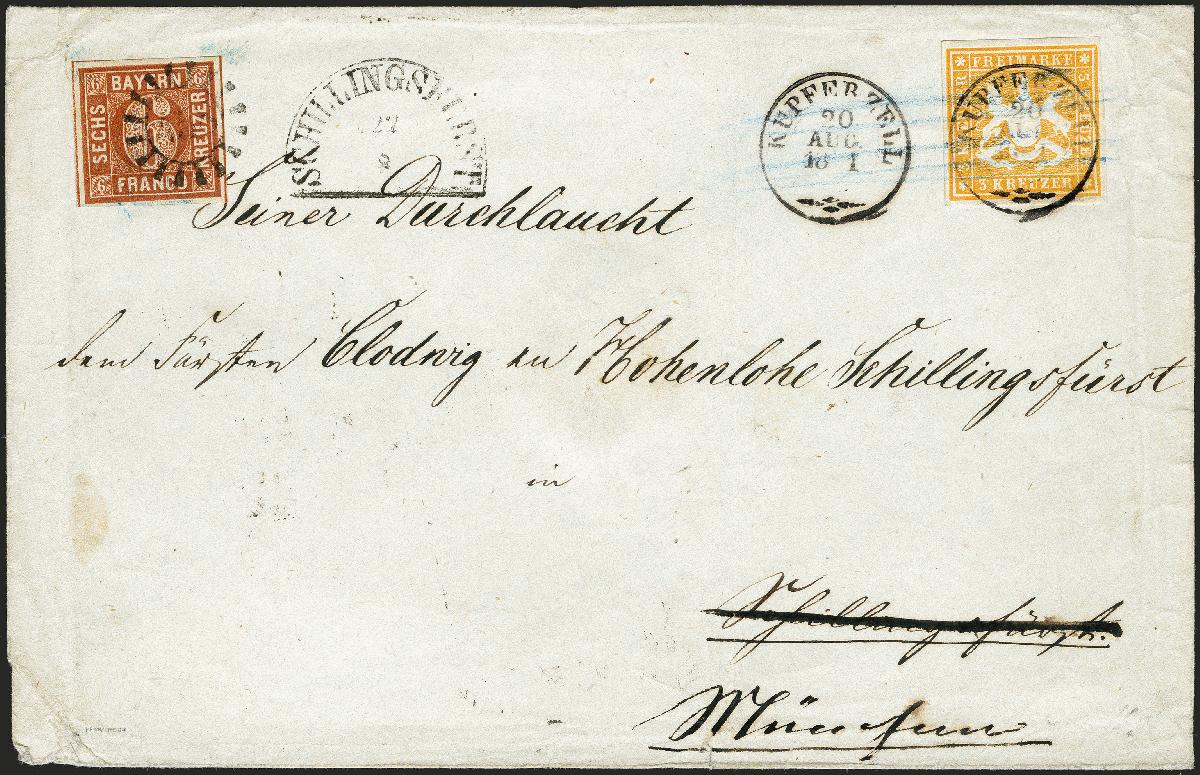 BAYERN
SECHS
KREUZER
FRANCO
6 6 6
SCHILLINGSFUERST
22
KUPFERZELL
20
AUG
18 1
FREIMARKE
3 KREUZER
KUPFERZELL
20
AUG
Seiner Durchlaucht
dem Fürsten Clodwig zu Hohenlohe Schillingsfürst
in
Schillingsfürst.
München